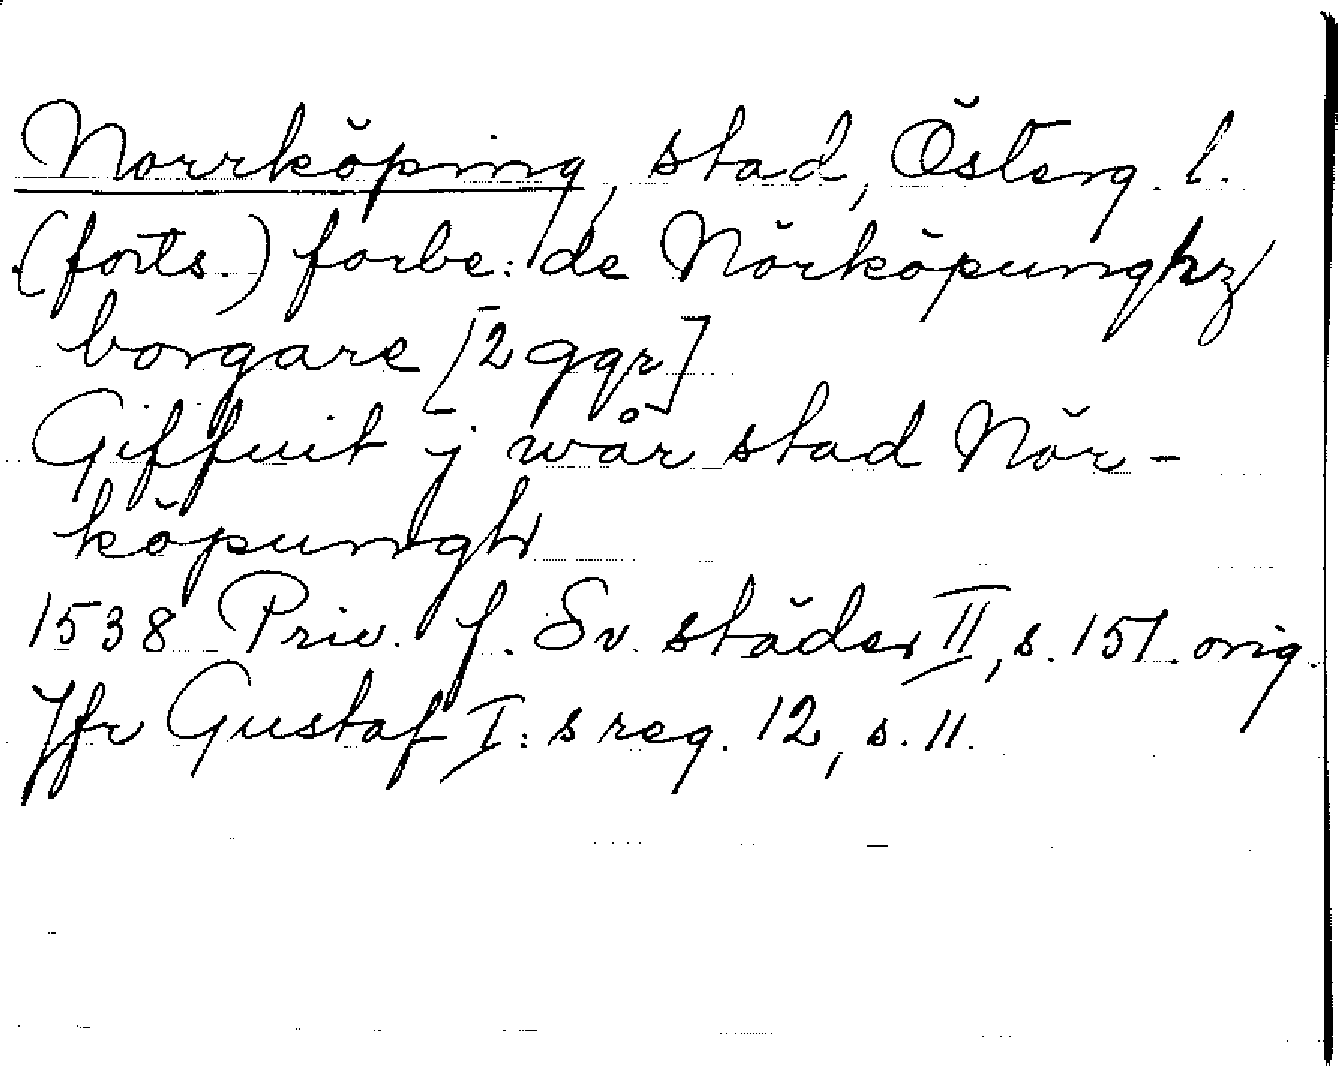 Norrköping, stad, Österg. l.
(forts.) forbe: de Nörköpunghz
borgare [2 ggr]
Giffuit j wår stad Nör-
köpungh
1538 Priv. f. Sv. städer II, s. 151. orig.
Jfr Gustaf I:s reg. 12, s. 11.